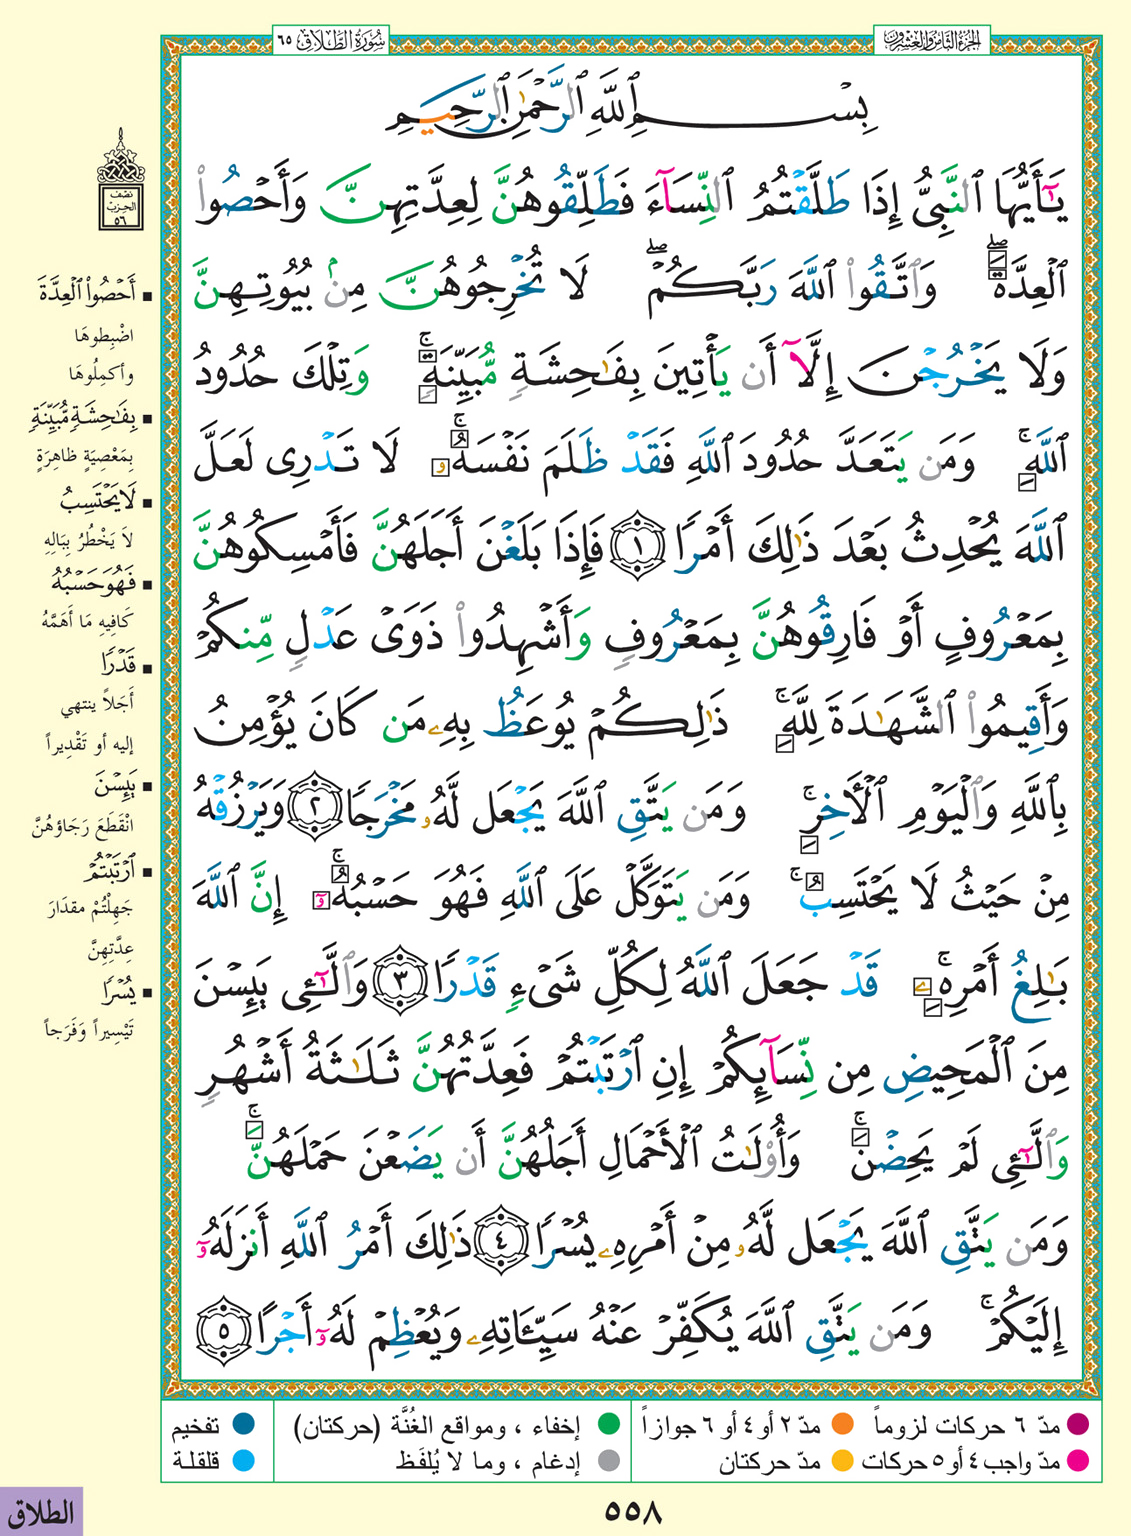 الجزء الثامن والعشرون
سُورَةُ الطَّلَاقِ ٦٥
بِسْمِ ٱللَّهِ ٱلرَّحْمَٰنِ ٱلرَّحِيمِ
يَٰٓأَيُّهَا ٱلنَّبِىُّ إِذَا طَلَّقْتُمُ ٱلنِّسَآءَ فَطَلِّقُوهُنَّ لِعِدَّتِهِنَّ وَأَحْصُوا۟
ٱلْعِدَّةَ ۖ وَٱتَّقُوا۟ ٱللَّهَ رَبَّكُمْ ۖ لَا تُخْرِجُوهُنَّ مِنۢ بُيُوتِهِنَّ
وَلَا يَخْرُجْنَ إِلَّآ أَن يَأْتِينَ بِفَٰحِشَةٍ مُّبَيِّنَةٍ ۚ وَتِلْكَ حُدُودُ
ٱللَّهِ ۚ وَمَن يَتَعَدَّ حُدُودَ ٱللَّهِ فَقَدْ ظَلَمَ نَفْسَهُۥ ۚ لَا تَدْرِى لَعَلَّ
ٱللَّهَ يُحْدِثُ بَعْدَ ذَٰلِكَ أَمْرًا ١ فَإِذَا بَلَغْنَ أَجَلَهُنَّ فَأَمْسِكُوهُنَّ
بِمَعْرُوفٍ أَوْ فَارِقُوهُنَّ بِمَعْرُوفٍ وَأَشْهِدُوا۟ ذَوَىْ عَدْلٍ مِّنكُمْ
وَأَقِيمُوا۟ ٱلشَّهَٰدَةَ لِلَّهِ ۚ ذَٰلِكُمْ يُوعَظُ بِهِۦ مَن كَانَ يُؤْمِنُ
بِٱللَّهِ وَٱلْيَوْمِ ٱلْأَخِرِ ۚ وَمَن يَتَّقِ ٱللَّهَ يَجْعَل لَّهُۥ مَخْرَجًا ٢ وَيَرْزُقْهُ
مِنْ حَيْثُ لَا يَحْتَسِبُ ۚ وَمَن يَتَوَكَّلْ عَلَى ٱللَّهِ فَهُوَ حَسْبُهُۥٓ ۚ إِنَّ ٱللَّهَ
بَٰلِغُ أَمْرِهِۦ ۚ قَدْ جَعَلَ ٱللَّهُ لِكُلِّ شَىْءٍ قَدْرًا ٣ وَٱلَّٰٓـِٔى يَئِسْنَ
مِنَ ٱلْمَحِيضِ مِن نِّسَآئِكُمْ إِنِ ٱرْتَبْتُمْ فَعِدَّتُهُنَّ ثَلَٰثَةُ أَشْهُرٍ
وَٱلَّٰٓـِٔى لَمْ يَحِضْنَ ۚ وَأُو۟لَٰتُ ٱلْأَحْمَالِ أَجَلُهُنَّ أَن يَضَعْنَ حَمْلَهُنَّ ۚ
وَمَن يَتَّقِ ٱللَّهَ يَجْعَل لَّهُۥ مِنْ أَمْرِهِۦ يُسْرًا ٤ ذَٰلِكَ أَمْرُ ٱللَّهِ أَنزَلَهُۥٓ
إِلَيْكُمْ ۚ وَمَن يَتَّقِ ٱللَّهَ يُكَفِّرْ عَنْهُ سَيِّـَٔاتِهِۦ وَيُعْظِمْ لَهُۥٓ أَجْرًا ٥
نصف
الحزب
٥٦
أَحْصُوا۟ ٱلْعِدَّةَ
اضْبِطوهَا
وأكمِلُوهَا
بِفَٰحِشَةٍ مُّبَيِّنَةٍ
بِمَعْصِيَةٍ ظاهِرَةٍ
لَا يَحْتَسِبُ
لاَ يَخْطُرُ بِبَالِهِ
فَهُوَ حَسْبُهُ
كَافِيهِ مَا أَهَمَّهُ
قَدْرًا
أَجَلاً ينتهي
إليه أو تَقْدِيراً
يَئِسْنَ
انْقَطَعَ رَجَاؤهُنَّ
ٱرْتَبْتُمْ
جَهِلْتُمْ مقدَارَ
عِدَّتِهِنَّ
يُسْرًا
تَيْسِيراً وَفَرَجاً
مدّ ٦ حركات لزوماً
مدّ ٢ أو ٤ أو ٦ جوازاً
إخفاء ، ومواقع الغُنَّة (حركتان)
تفخيم
مدّ واجب ٤ أو ٥ حركات
مدّ حركتان
إدغام ، وما لا يُلفَظ
قلقلة
٥٥٨
الطلاق